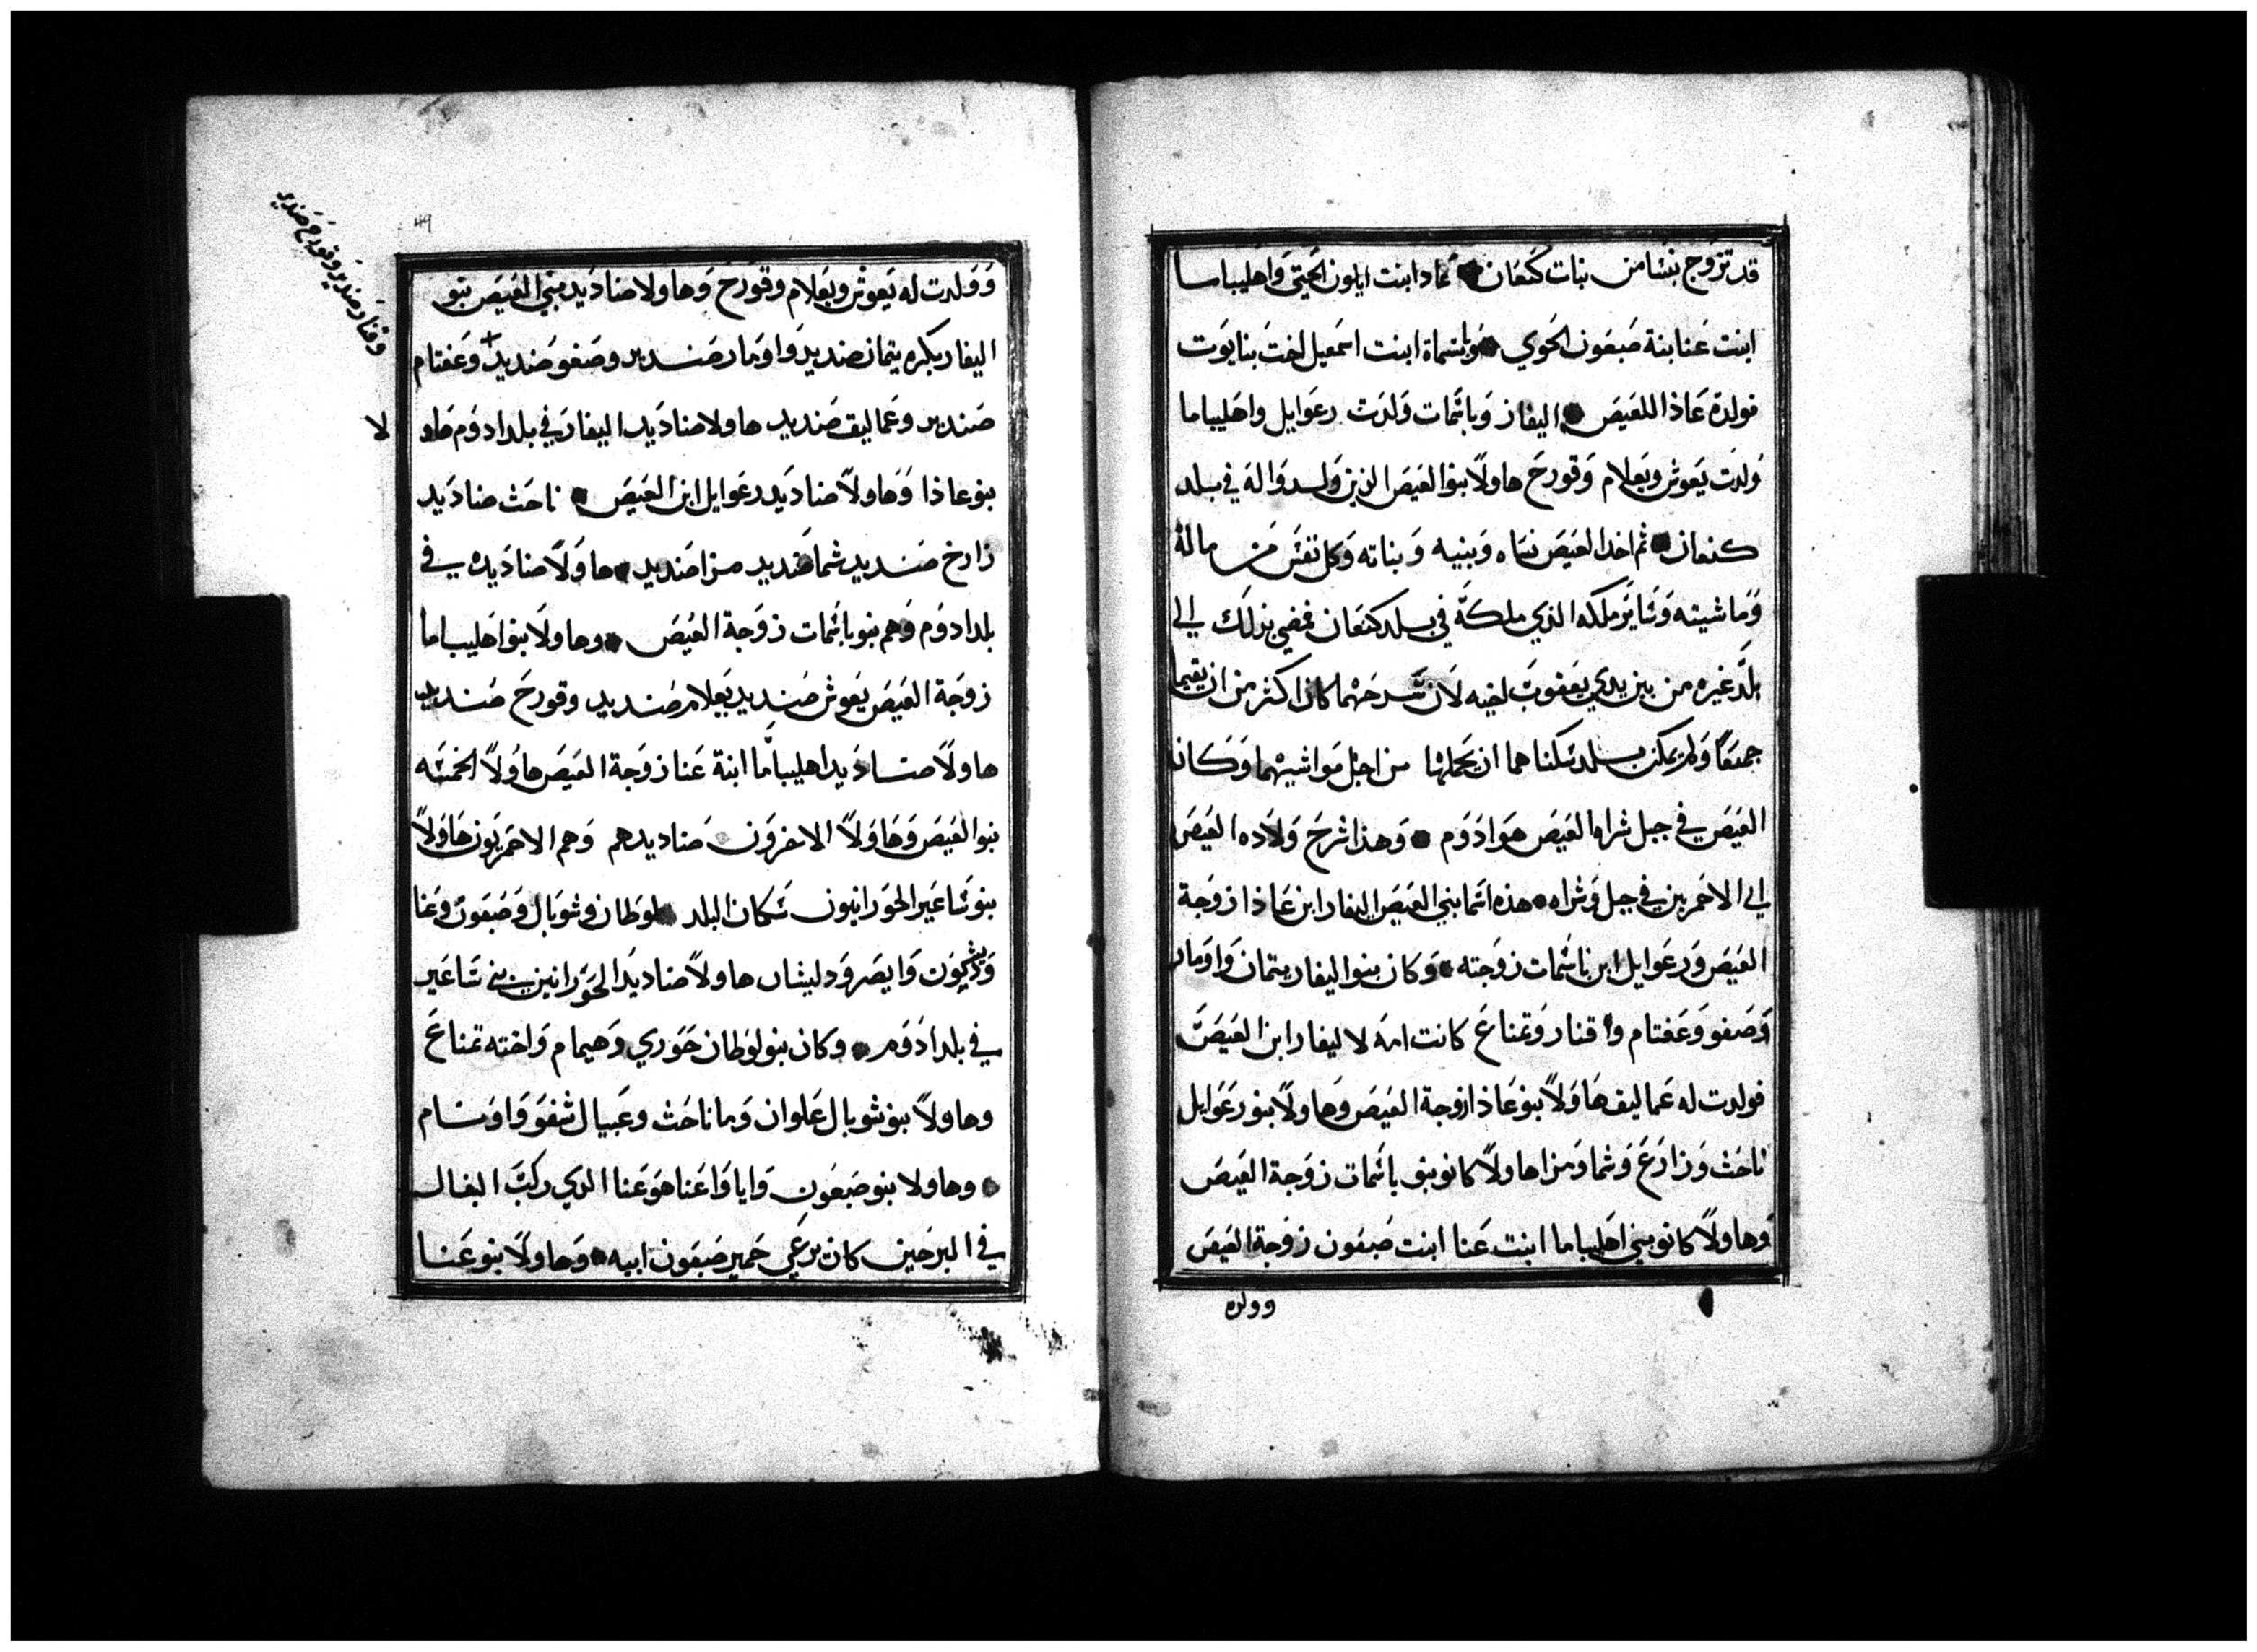 قد تزوج بنسا من بنات كنعان عادا ابنت ايلون الحيتي واهليباما
ابنت عنا بنة ضبعون الحوي وباسماة ابنت اسمعيل اخت بنايوت
فولدة عاذا اللعيص اليفاز وباثمات ولدت رعوايل واهليباما
ولدت يعوش ويعلام وقورح هاولاً بنوا العيص الذين ولدوا له في بلد
كنعان ثم اخدا العيص نساه وبنيه وبناته وكل نفس من ماله
وماشيته وسايرملكه الذي ملكة في بلد كنعان فمضي بذلك الي
بلد غيره من بين يدي يعقوب اخيه لان سرحهما كان اكثر من ان يقيما
جميعاً ولم يمكن بلد سكناهما ان يحملهما من اجل مواشيهما وكان
العيص في جبل شراه العيص هوا ادوم وهذا شرح ولاده العيص
الي الاحمريين في جبل وشراه هذه اسما بني العيص اليفار ابن عاذا زوجة
العيص ورعوايل ابن باثمات زوجته وكان بنوا اليفار يتمان واومار
وصفو وعفتام واقنار وتمناع كانت امه لاليفار ابن العيص
فولدت له عماليق هاولاً بنو عاذا زوجة العيص وهاولاً بنو رعوايل
ناحث وزارع وشما ومزا هاولاً كانو بنو باثمات زوجة العيص
وهاولاً كانو بني اهليباما ابنت عنا ابنت ضبعون زوجة العيص
وولده
٤٩
وولدت له يعوش ويعلام وقورح وهاولا صناديد بني العيص بنو
اليفار بكره يتمان صنديد واومار صنديد وصفو صنديد وعفتام
وقنار صنديد وقورح صنديد
صنديد وعماليق صنديد هاولا صناديد اليفار في بلد ادوم هاو
لا
بنو عاذا وهاولاً صناديد رعوايل ابن العيص ناحث صناديد
زارخ صنديد شما صنديد مزا صنديد هاولاً صناديده في
بلد ادوم وهم بنو باثمات زوجة العيص وهاولا بنوا اهليباما
زوجة العيص يعوش صنديد يعلام صنديد وقورح صنديد
هاولا صناديد اهليباما ابنة عنا زوجة العيص هاولاً الخمسه
بنوا العيص وهاولاً صناديدهم وهم الاحمريون هاولاً
بنو ساعير الحورانيون سكان البلد لوطان وشوبال وضبعون وعنا
وديشون وايصر وديشان هاولاً صناديد الحورانين بني ساعير
في بلد ادوم وكان بنو لوطان حوري وهيمام واخته تمناع
وهاولاً بنو شوبال علوان وماناحث وعيبال شفو واوسام
وهاولا بنو ضبعون وايا واعنا هو عنا الدي ركب البغال
في البر حين كان يرعي حمير ضبعون ابيه وهاولاً بنو عنا